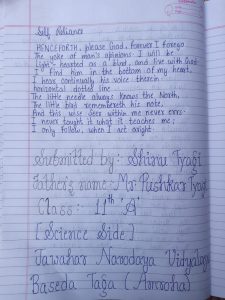 Self Reliance
HENCEFORTH, please God, forever I forego
The yoke of men's opinions. I will be
Light-hearted as a bird, and live with God.
I find him in the bottom of my heart,
I hear continually his voice therein.
horizontal dotted line
The little needle always knows the North,
The little bird remembereth his note,
And this wise Seer within me never errs.
I never taught it what it teaches me;
I only follow, when I act aright.
Submitted by: Shinu Tyagi
Father's name: Mr Pushkar Tyagi
Class: 11th 'A'
[Science Side]
Jawahar Navodaya Vidyalaya
Baseda Taga (Amroha)